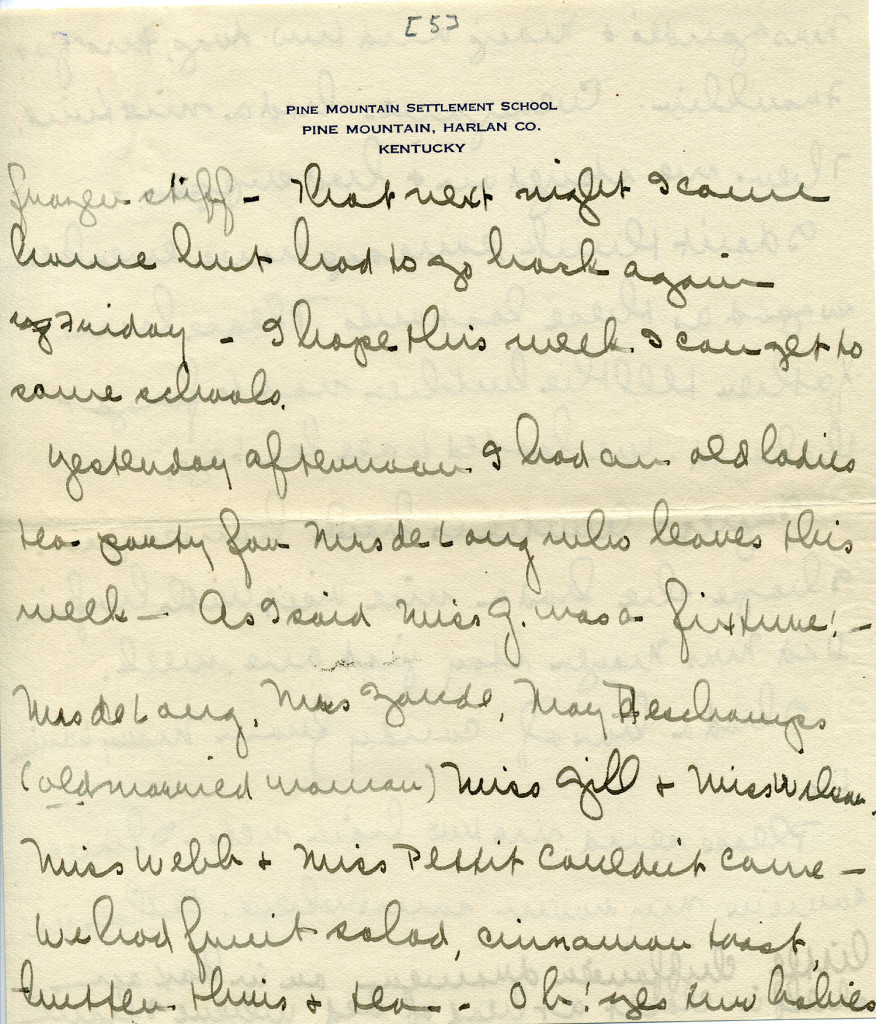 [5]
PINE MOUNTAIN SETTLEMENT SCHOOL
PINE MOUNTAIN, HARLAN CO.
KENTUCKY
frozen stiff - That next night I came
home but had to go back again
Friday - I hope this week I can get to
some schools.
Yesterday afternoon I had an old ladies
tea party for Mrs de Long who leaves this
week - As I said Miss G. was a fixture! -
Mrs de Long, Mrs Zande, May Deschamps
(old married woman) Miss Gill & Miss Wilson.
Miss Webb & Miss Pettit couldn't come -
We had fruit salad, cinnamon toast,
butter thins & tea - - Oh! yes two babies